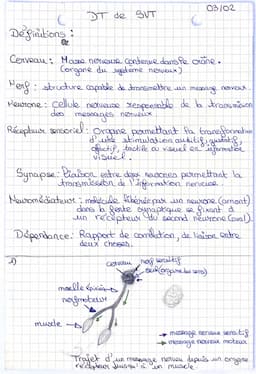 03/02
DT de SVT
Définitions :
Cerveau : Masse nerveuse contenue dans le crâne.
(organe du système nerveux)
Nerf : structure capable de transmettre un message nerveux.
Neurone : cellule nerveuse responsable de la transmission
des messages nerveux
Récepteur sensoriel : Organe permettant la transformation
d'une stimulation auditif, gustatif,
olfactif, tactile ou visuel en information
visuel.
Synapse : liaison entre deux neurones permettant la
transmission de l'information nerveuse.
Neuromédiateur : molécule libérée par un neurone (amont)
dans la fente synaptique se fixant à
un récepteur du second neurone (aval).
Dépendance : Rapport de corrélation, de liaison entre
deux choses.
1)
cerveau
nerf sensitif
oeil (organe du sens)
moelle épinière
nerf moteur
muscle
→ message nerveux sensitif
→ message nerveux moteur
Trajet d'un message nerveux depuis un organe
récepteur jusqu'à un muscle.